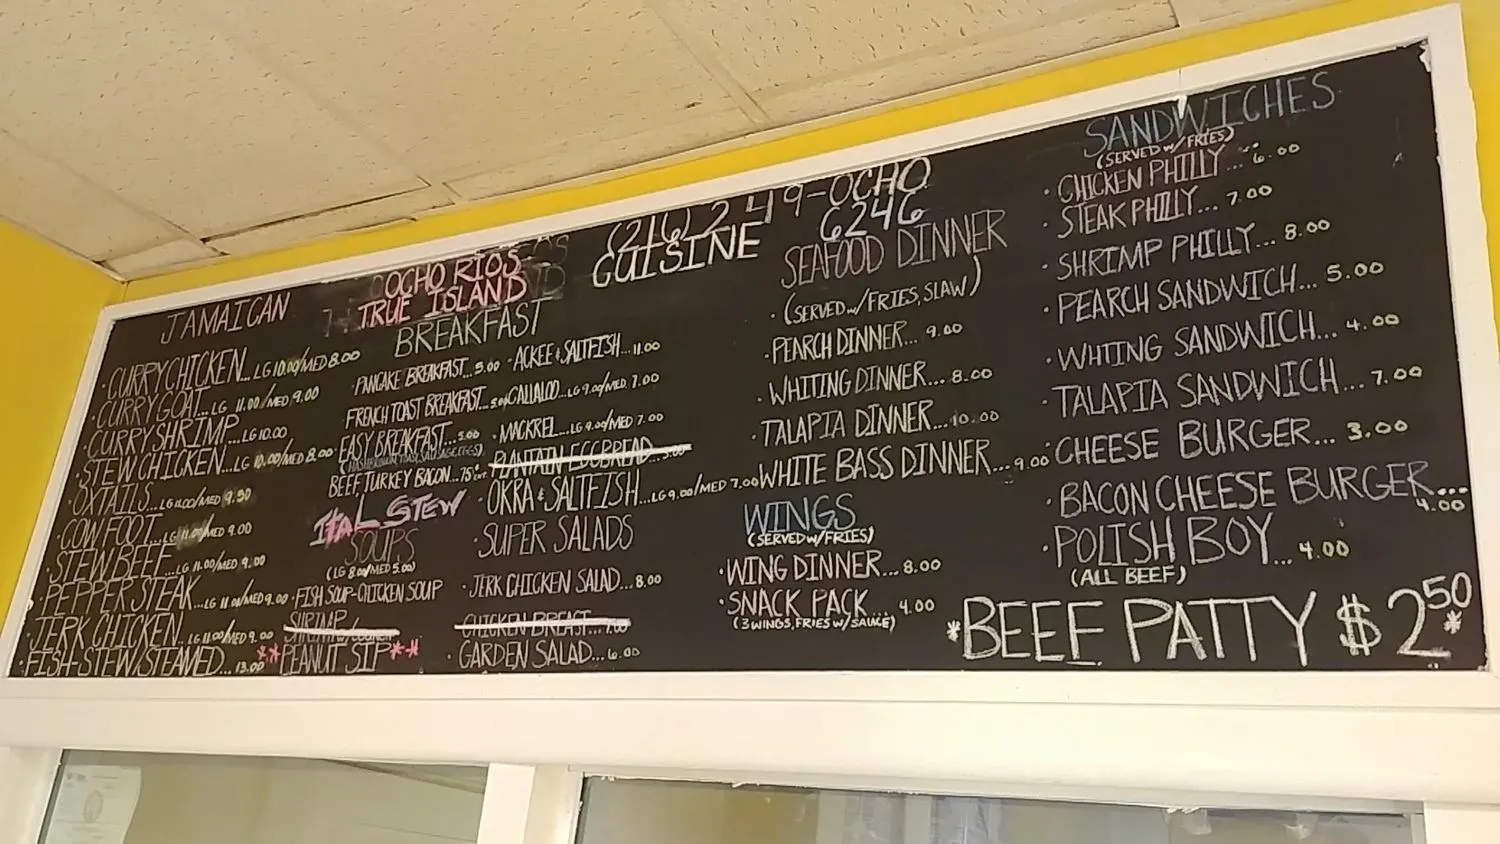 (216) 249-OCHO
6246
OCHO RIOS
TRUE ISLAND
CUISINE
JAMAICAN
• CURRY CHICKEN... LG 10.00/MED 8.00
• CURRY GOAT... LG 11.00/MED 9.00
• CURRY SHRIMP... LG 10.00
• STEW CHICKEN... LG 10.00/MED 8.00
• OXTAILS... LG 11.00/MED 9.50
• COW FOOT... LG 11.00/MED 9.00
• STEW BEEF... LG 11.00/MED 9.00
• PEPPER STEAK... LG 11.00/MED 9.00
• JERK CHICKEN... LG 11.00/MED 9.00
• FISH-STEW/STEAMED... 13.00
BREAKFAST
• PANCAKE BREAKFAST... 5.00
FRENCH TOAST BREAKFAST... 5.00
EASY BREAKFAST... 5.00
BEEF, TURKEY BACON... 75
• ACKEE & SALTFISH... 11.00
• CALLALOO... LG 9.00/MED. 7.00
• MACKREL... LG 9.00/MED 7.00
• PLANTAIN EGGBREAD... 5.00
• OKRA & SALTFISH... LG 9.00/MED 7.00
ITAL STEW
SOUPS
(LG 8.00/MED 5.00)
• FISH SOUP-CHICKEN SOUP
SHRIMP
**PEANUT SIP**
• SUPER SALADS
• JERK CHICKEN SALAD... 8.00
• CHICKEN BREAST... 7.00
• GARDEN SALAD... 6.00
SEAFOOD DINNER
(SERVED W/FRIES, SLAW)
• PEARCH DINNER... 9.00
• WHITING DINNER... 8.00
• TALAPIA DINNER... 10.00
• WHITE BASS DINNER... 9.00
WINGS
(SERVED W/FRIES)
• WING DINNER... 8.00
• SNACK PACK... 4.00
(3 WINGS, FRIES W/ SAUCE)
SANDWICHES
(SERVED W/ FRIES)
• CHICKEN PHILLY... 6.00
• STEAK PHILLY... 7.00
• SHRIMP PHILLY... 8.00
• PEARCH SANDWICH... 5.00
• WHTING SANDWICH... 4.00
• TALAPIA SANDWICH... 7.00
• CHEESE BURGER... 3.00
• BACON CHEESE BURGER... 4.00
• POLISH BOY... 4.00
(ALL BEEF)
*BEEF PATTY $2.50*